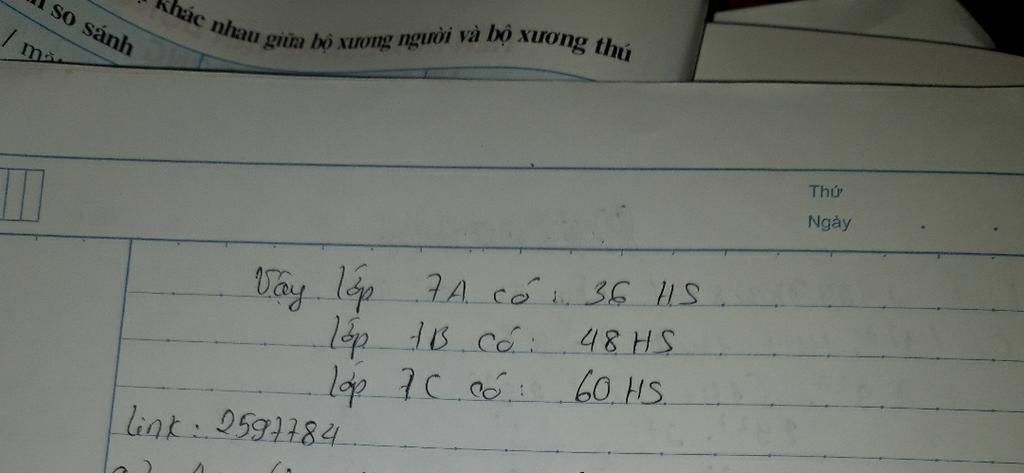 khác nhau giữa bộ xương người và bộ xương thú
so sánh
Thứ
Ngày
Vậy lớp 7A có: 36 HS
lớp 7B có: 48 HS
lớp 7C có: 60 HS
link: 2597784